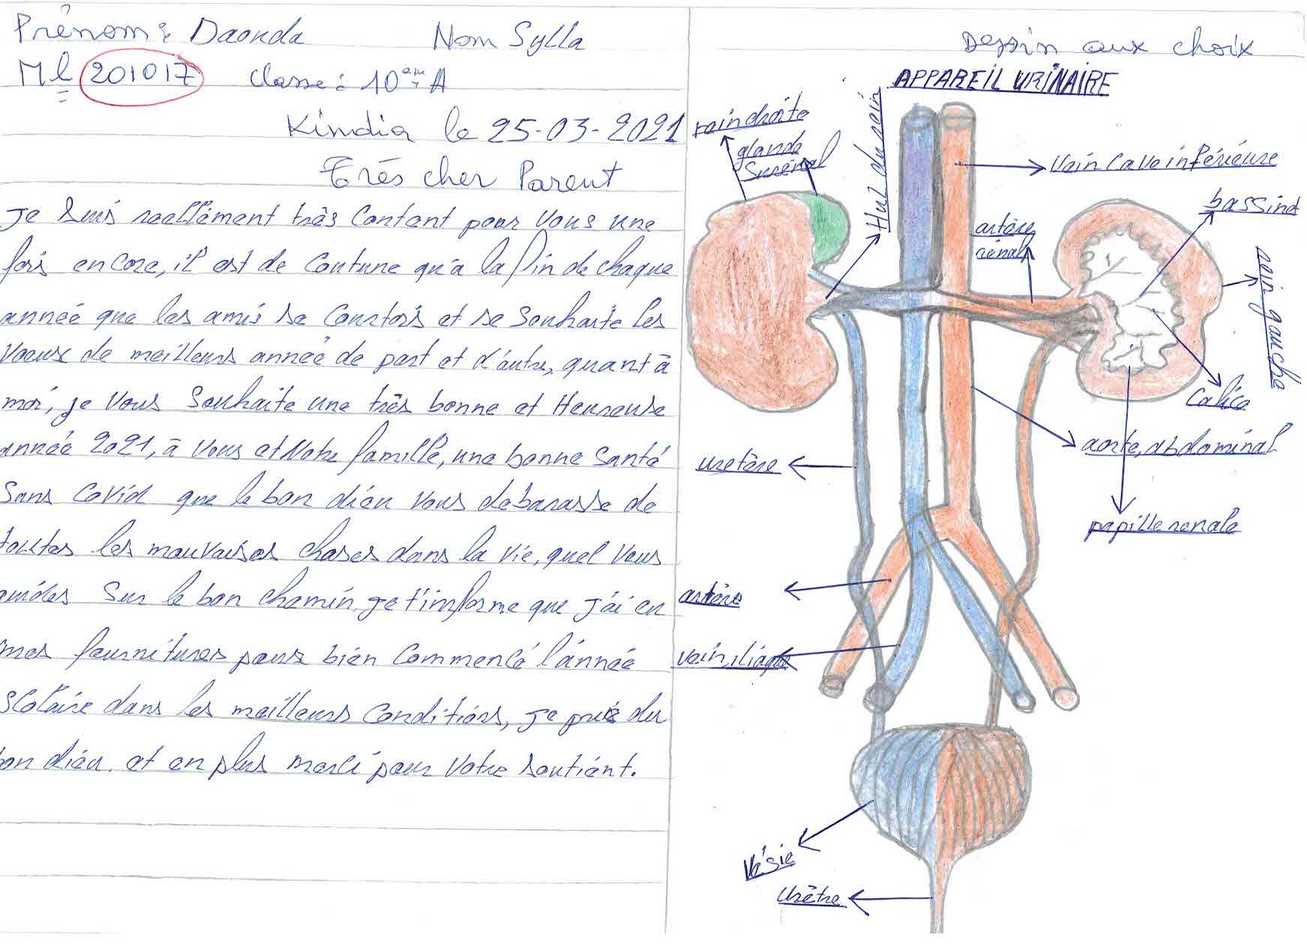 Prénom: Daouda Nom Sylla
Ml 201017 Classe: 10ème A
Kindia le 25-03-2021
Très cher Parent
Je suis reellément très Contant pour Vous une
fois encore, il est de Coutune qu'à la fin de chaque
année que les amis se et se Souhaite les
Voeux de meilleurs année de part et d'autre, quant à
moi, je Vous Souhaite une très bonne et Heureuse
année 2021, à Vous et Votre famille, une bonne Santé
Sans Covid que le bon diéu vous debarasse de
toutes les mauvaises choses dans la vie, quel Vous
Sur le bon chemin, je t'informe que j'ai eu
mes fournitures pour bién Commencé l'année
scolaire dans les meilleurs Conditions, je priè du
bon diéu. et en plus merci pour Votre soutient.
Dessin aux choix
APPAREIL URINAIRE
rein droite
glande
Surénal
Hul du rein
vein Cave inférieure
artère
rénal
bassinet
rein gauche
Calice
aorte, abdominal
papille renale
uretère
artère
vein, iliaque
Vésie
Urètre